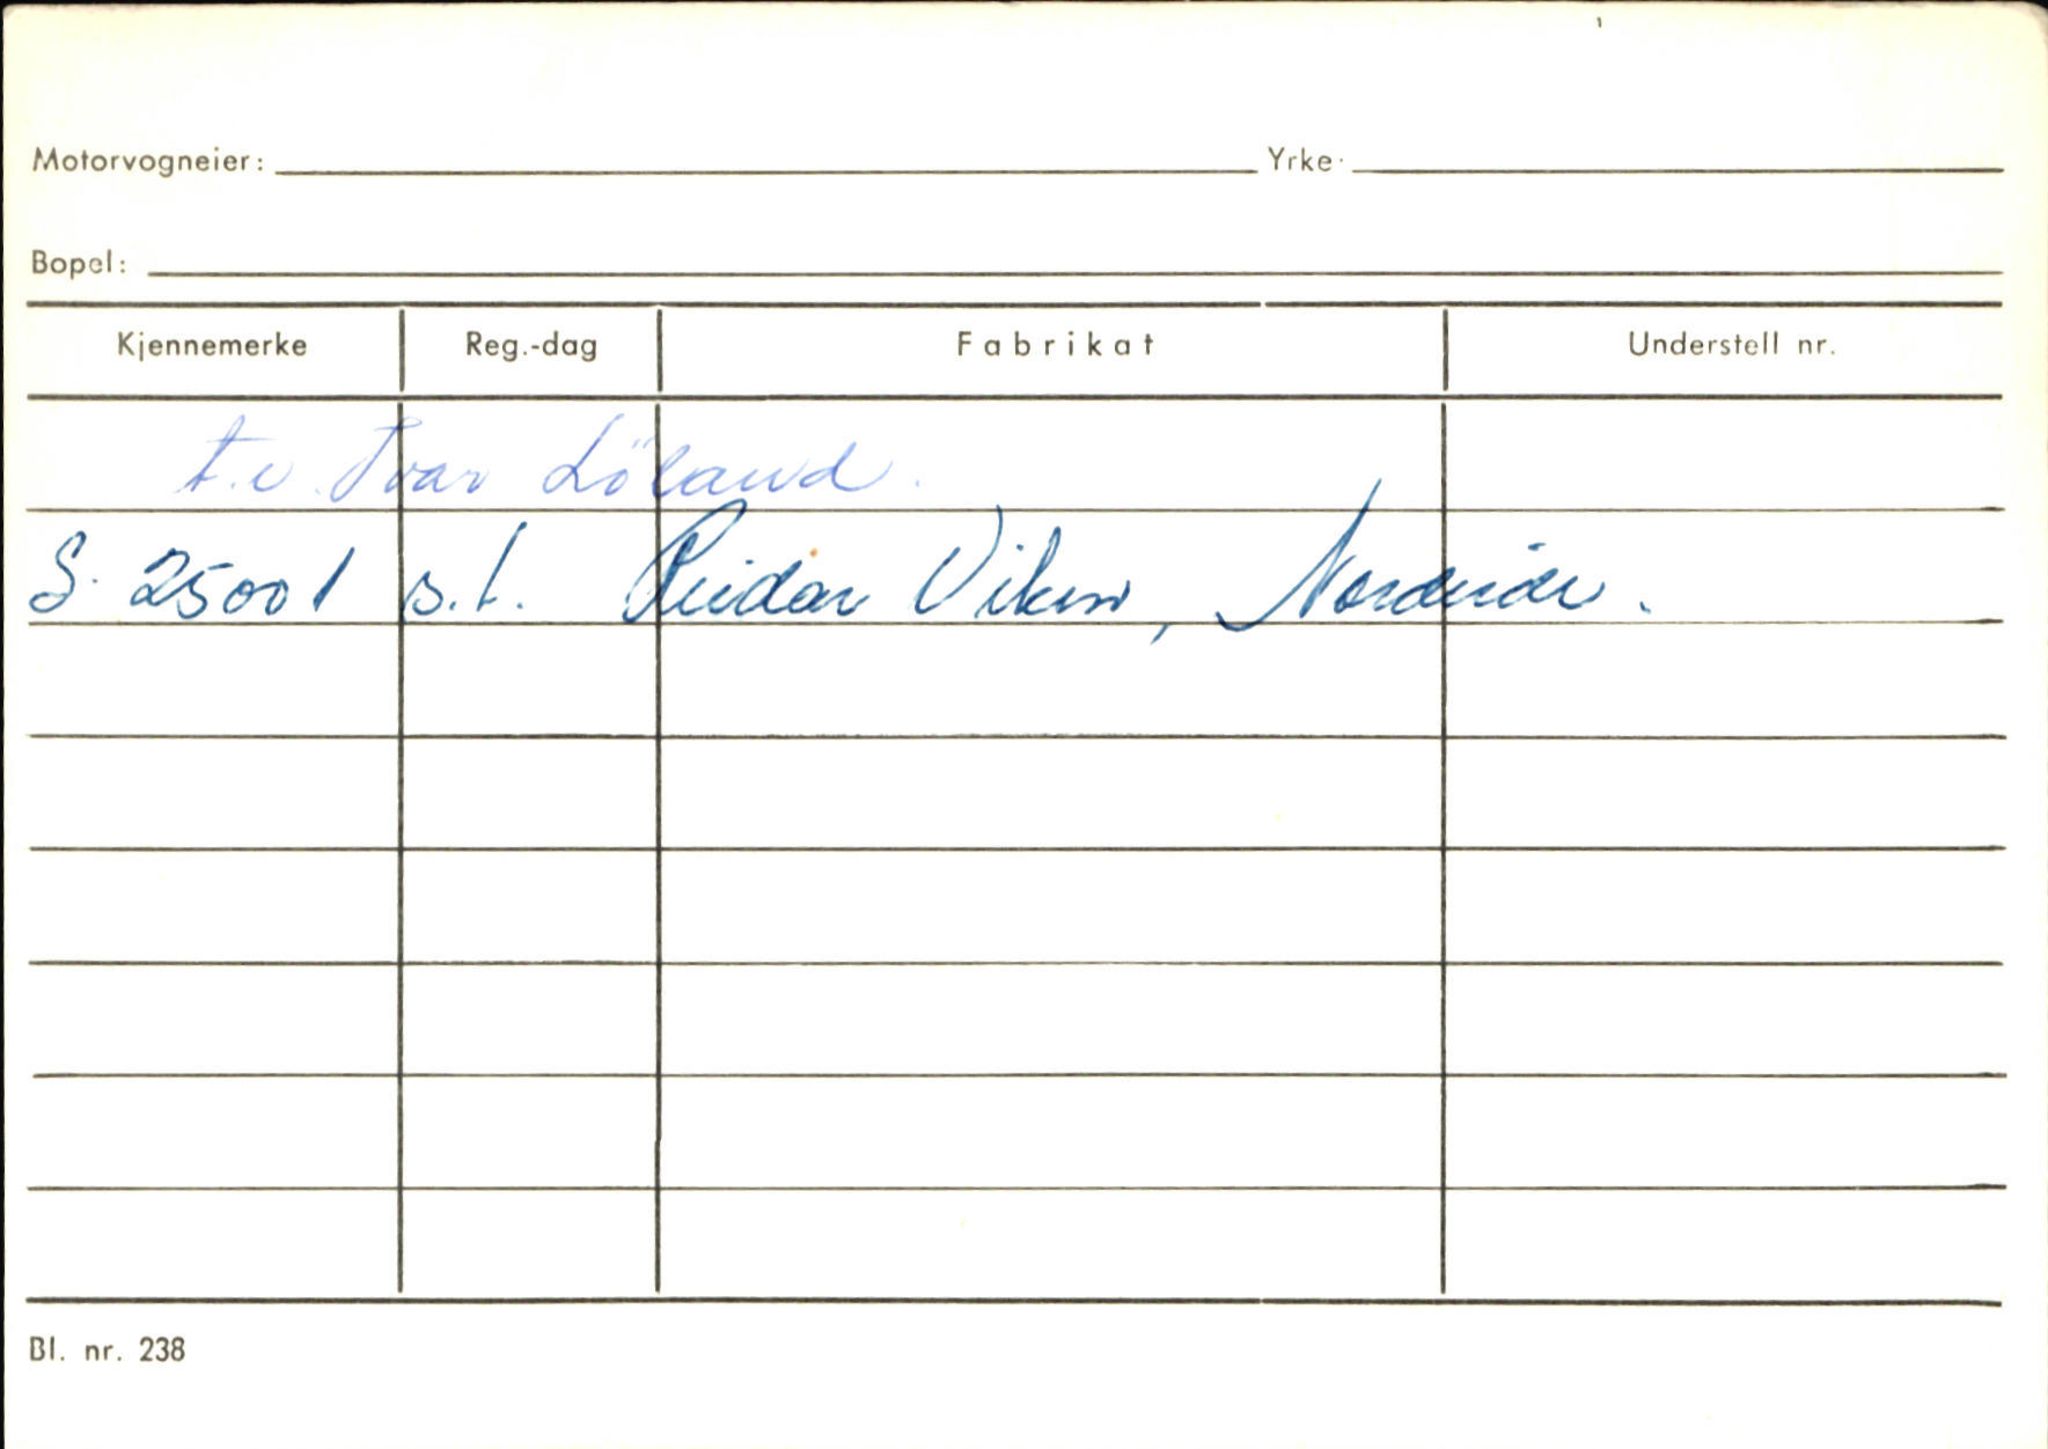 Motorvogneier: Yrke:
Bopel:
Kjennemerke Reg.-dag Fabrikat Understell nr.
t.v. Ivar Löland.
S. 25001 s.t. Reidar Viken, Nordeide.
Bl. nr. 238